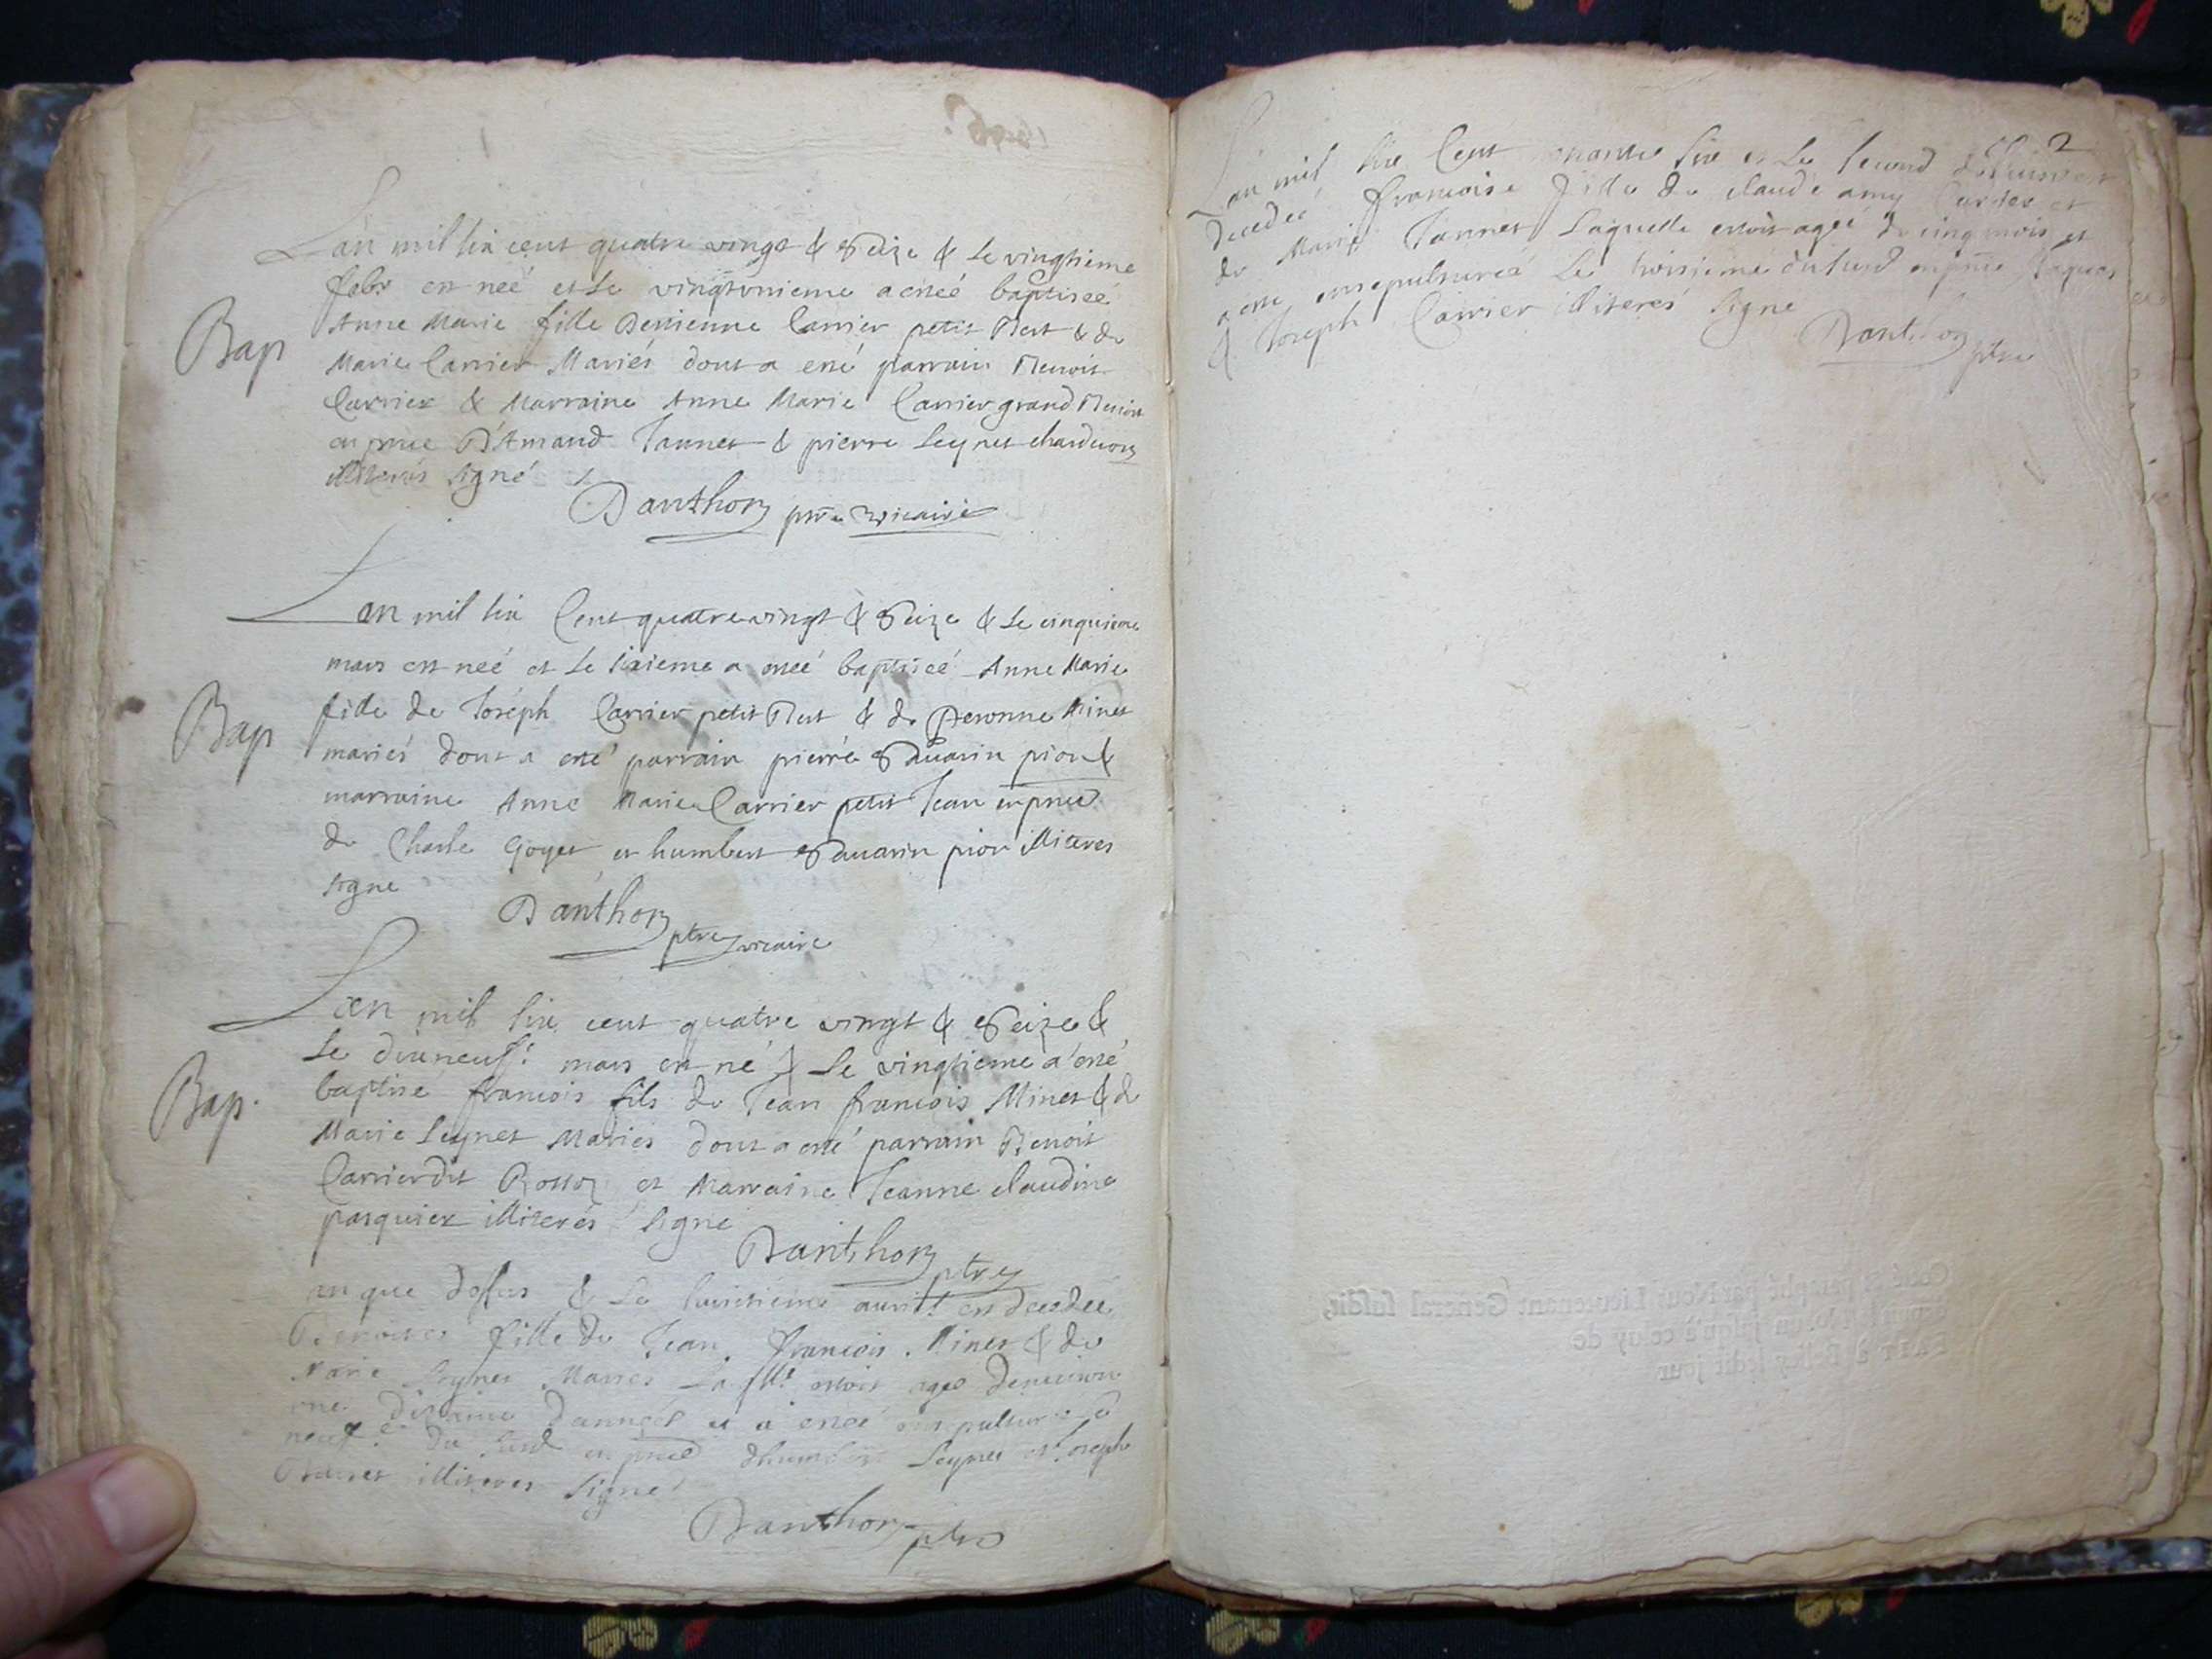 L'an mil six cent quatre vingt & Seize & Le vingtieme
febr est neé et Le vingtunieme a esteé baptiseé
Bap
Anne Marie fille Destienne Carrier petit Bert & de
Marie Carrier Mariés dont a esté parrain Benoit
Carrier & Marraine Anne Marie Carrier grand Benoit
en pnce D'Amand Jannet & pierre Seynet charderon
illiterés signé
Danthon ptre vicaire
L'an mil six Cent quatre vingt & Seize & Le cinquieme
mars est neé et Le sixieme a esteé baptiseé Anne Marie
Bap
fille de Joseph Carrier petit Bert & de Peronne Minet
mariés dont a esté parrain pierre Savarin pion &
marraine Anne Marie Carrier petit Jean en pnce
de Charle Goyet et humbert Savarin pion illiteres
signe
Danthon ptre vicaire
L'an mil six cent quatre vingt & Seize &
Le dixneuf.e mars est né & Le vingtieme a esté
Bap.
baptise francois fils de Jean francois Minet & de
Marie Seynet Mariés dont a esté parrain Benoit
Carrier dit Rosset et Marraine Jeanne claudine
pasquier illiterés signe
Danthon ptre
an que dessus & Le huictieme avril est decedeé
Benoite fille de Jean francois Minet & de
Marie Seynet Mariés La fille estoit agee denviron
une dizaine d'années et a esteé ensepulture
neuf.e du susd en pnce dhumbert Seynet et Joseph
illiteres signé
Danthon ptre
2
L'an mil six Cent nonante six et Le second
decedeé francoise fille de claude amy Carrier et
de Marie Jannet Laquelle estoit ageé de cinq mois et
a esté ensepultureé Le troisieme dususd en pnce Jaques
& Joseph Carrier illiterés signe
Danthon ptre